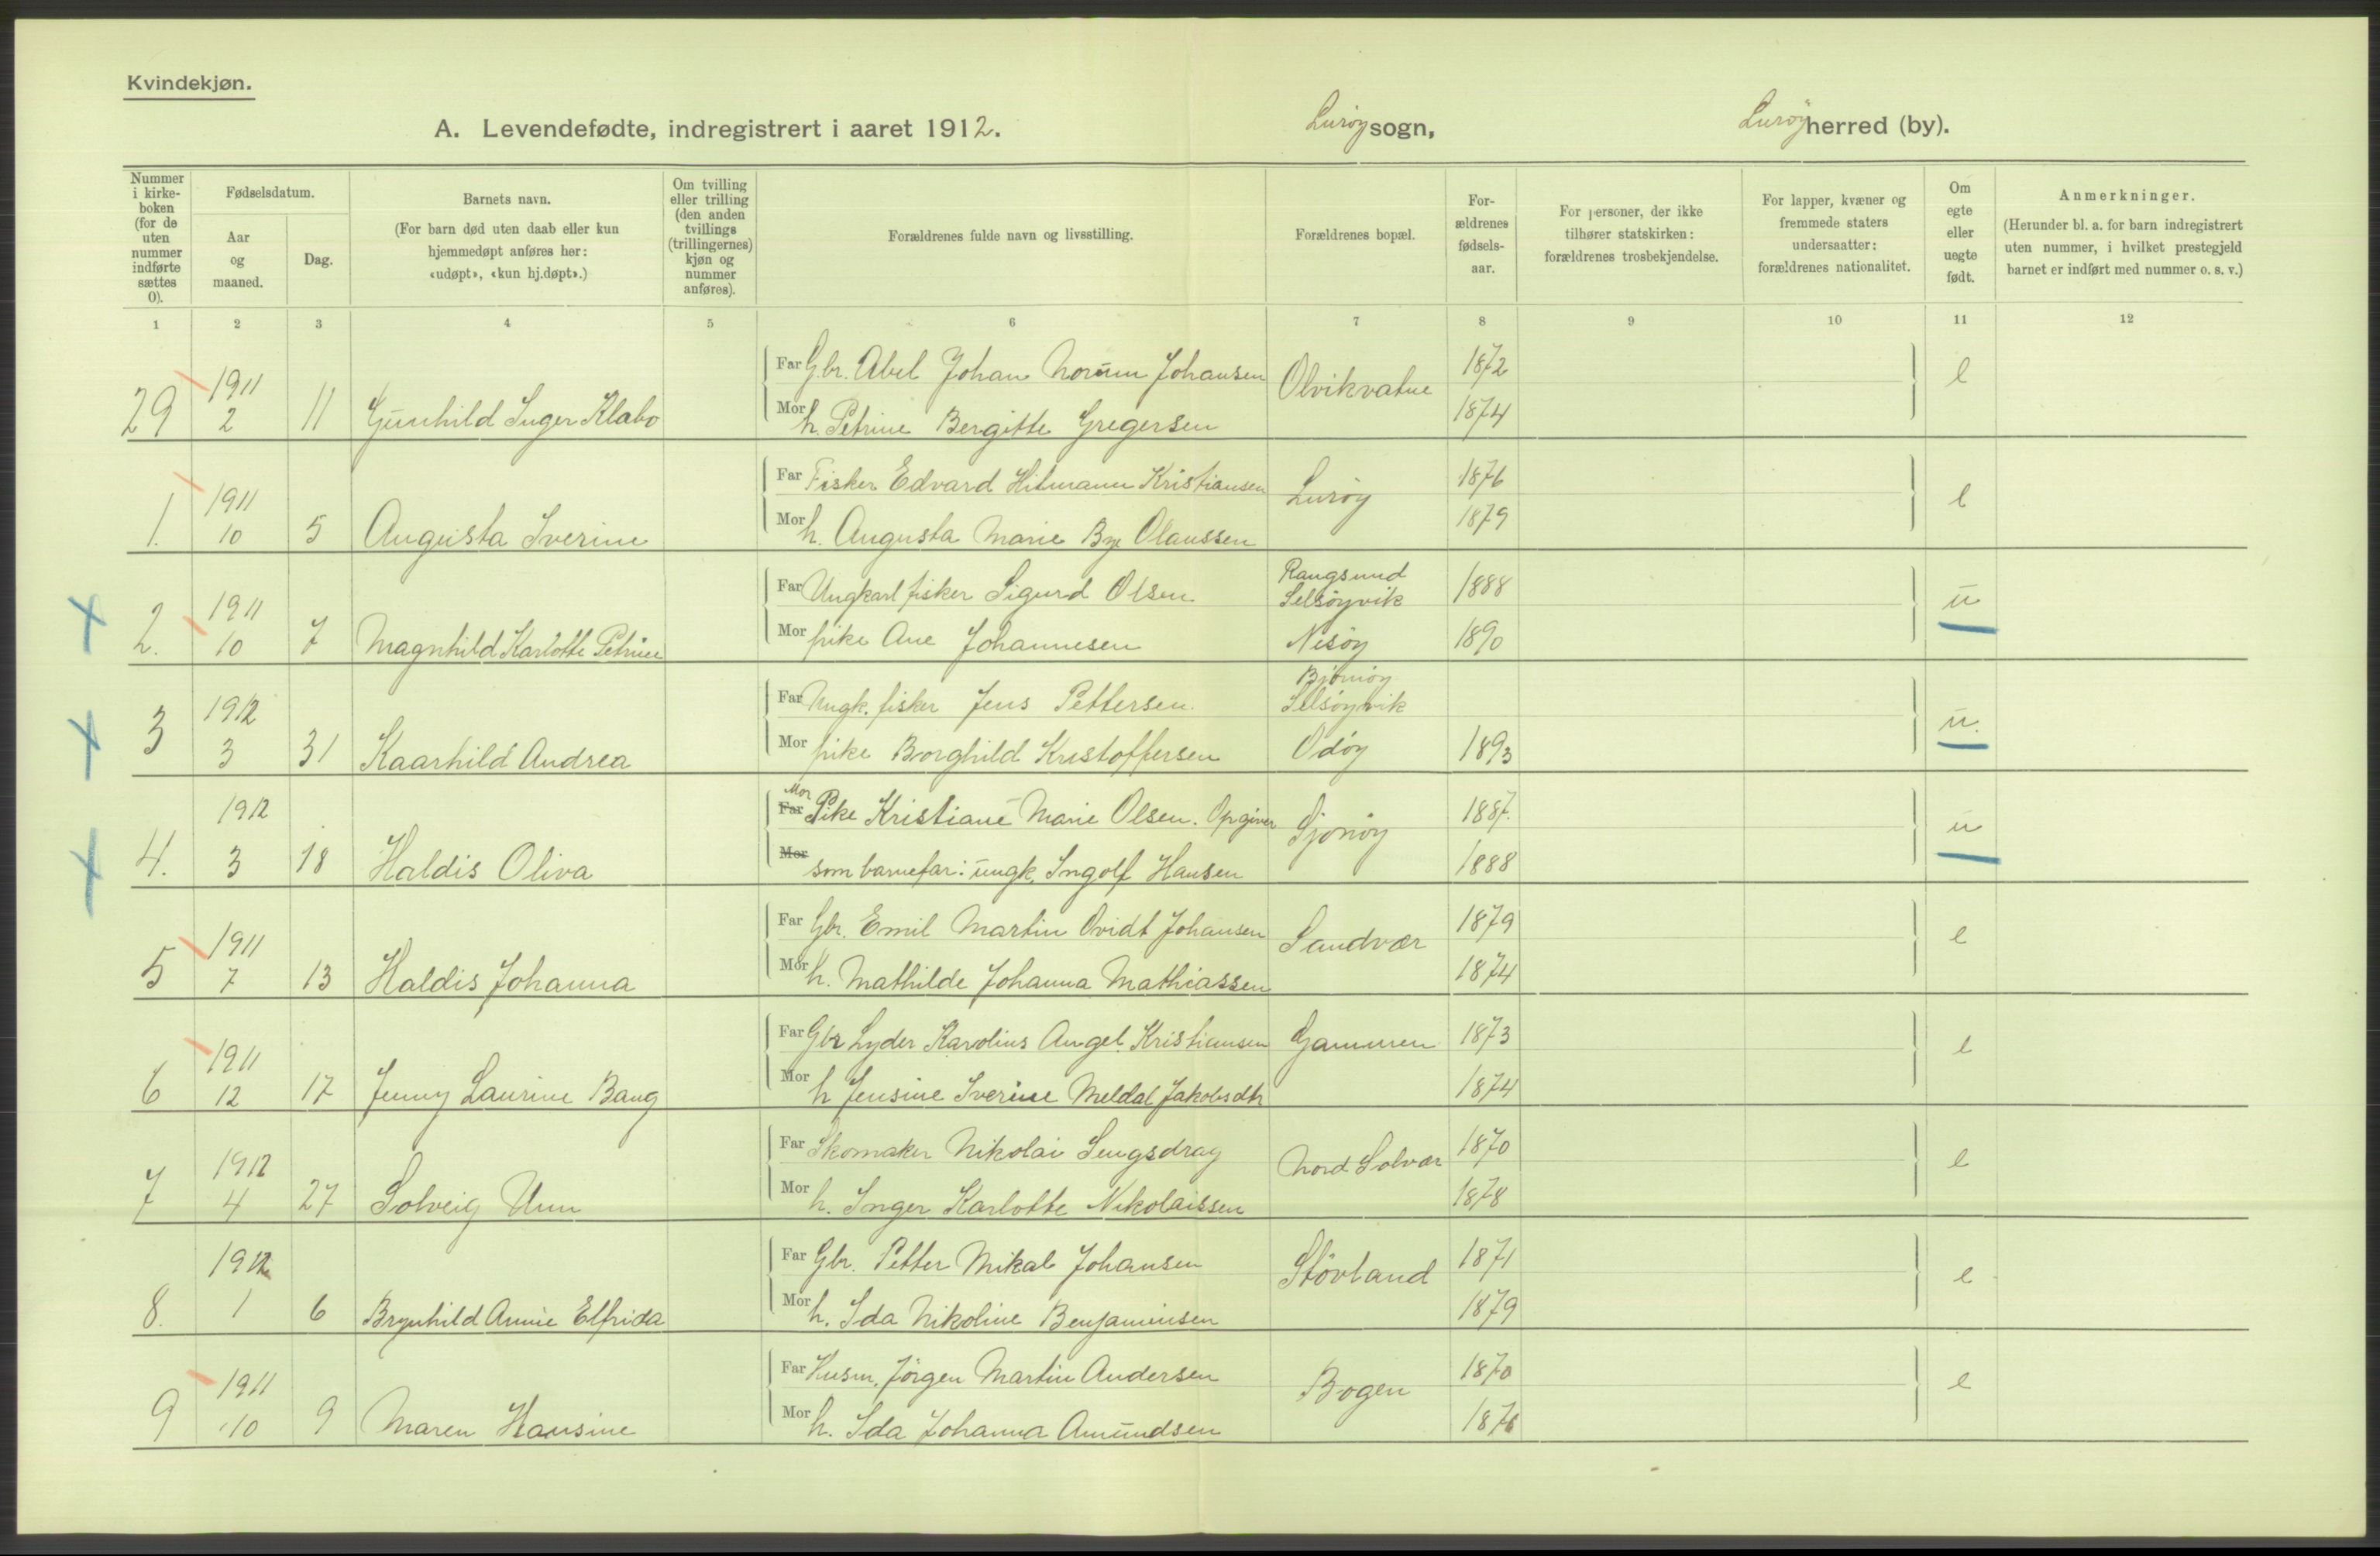 Kvindekjøn.
A. Levendefødte, indregistrert i aaret 1912. Lurøy sogn, Lurøy herred (by).
Nummer i kirkeboken (for de uten nummer indførte sættes 0).
Fødselsdatum.
Aar og maaned.
Dag.
Barnets navn.
(For barn død uten daab eller kun hjemmedøpt anføres her: «udøpt», «kun hj.døpt».)
Om tvilling eller trilling (den anden tvillings (trillingernes) kjøn og nummer anføres).
Forældrenes fulde navn og livsstilling.
Forældrenes bopæl.
For-ældrenes fødsels-aar.
For personer, der ikke tilhører statskirken: forældrenes trosbekjendelse.
For lapper, kvæner og fremmede staters undersaatter: forældrenes nationalitet.
Om egte eller uegte født.
Anmerkninger.
(Herunder bl. a. for barn indregistrert uten nummer, i hvilket prestegjeld barnet er indført med nummer o. s. v.)
1 2 3 4 5 6 7 8 9 10 11 12
29 1911 2 11 Gunhild Inger Klabo
Far Gbr. Abel Johan Norum Johansen Olvikvatne 1872 e
Mor h. Petrine Bergitte Gregersen 1874
1. 1911 10 5 Augusta Iverine
Far Fisker Edvard Hilmann Kristiansen Lurøy 1876 e
Mor h. Augusta Marie Bye Olaussen 1879
2. 1911 10 7 Magnhild Karlotte Petrine
Far Ungkarl fisker Sigurd Olsen Rangsund Selsøyvik 1888 u
Mor pike Ane Johannesen Nesøy 1890
3 1912 3 31 Kaarhild Andrea
Far Ungk. fisker Jens Pettersen. Selsøyvik u.
Mor pike Borghild Kristoffersen Odøy 1893
4. 1912 3 18 Haldis Oliva
Far Mor Pike Kristiane Marie Olsen. Opgiver Sjonøy 1887. u
Mor som barnefar: ungk. Ingolf Hansen 1888
5 1911 7 13 Haldis Johanna
Far Gbr. Emil Martin Ovidt Johansen Sandvær 1879 e
Mor h. Mathilde Johanna Mathiassen 1874
6 1911 12 17 Jenny Laurine Bang
Far Gbr Lyder Karolius Angel. Kristiansen Gammen 1873 e
Mor h Jensine Iverine Meldal Jakobsdtr 1874
7 1912 4 27 Solveig Unn
Far Skomaker Nikolai Lengsdrag Nord Solvær 1870 e
Mor h. Inger Karlotte Nikolaissen 1878
8. 1912 1 6 Brynhild Annie Elfrida
Far Gbr. Petter Mikal Johansen Støvland 1871 e
Mor h. Ida Nikoline Benjaminsen 1879
9 1911 10 9 Maren Hansine
Far Husm. Jörgen Martin Andersen Bogen 1870 e
Mor h. Ida Johanna Amundsen